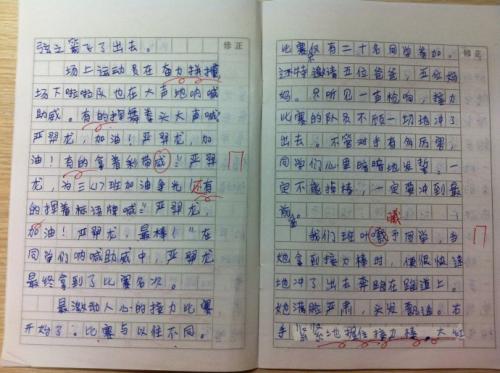 弦之箭飞了出去。
场上运动员在奋力拼搏,
场下啦啦队也在大声地呐喊
助威。有的挥舞着拳头大声喊
严羿龙,加油!严羿龙,加
油!有的拿着彩带喊“严羿
龙,为三(八)班加油争光,还有
的挥着标语牌喊“严羿龙,
加油!严羿龙,最棒!”在
同学们呐喊助威中,严羿龙
最终拿到了比赛名次。
最激动人心的接力比赛
开始了。比赛与以往不同。
修正
比赛仅有二十名同学参加。
还特邀请五位爸爸,五位妈
妈。只听见一声枪响,接力
比赛的队员不顾一切地冲了
出去。不管对手有多厉害,
同学们心里暗暗地发誓,一
定不能掉棒,一定要冲到最
前面。
我们班叶曦予同学,当
她拿到接力棒时,便很快速
地冲了出去奔跑在跑道上。
她满脸严肃,头发飘逸。右
手紧紧地握住接力棒,大红
修正